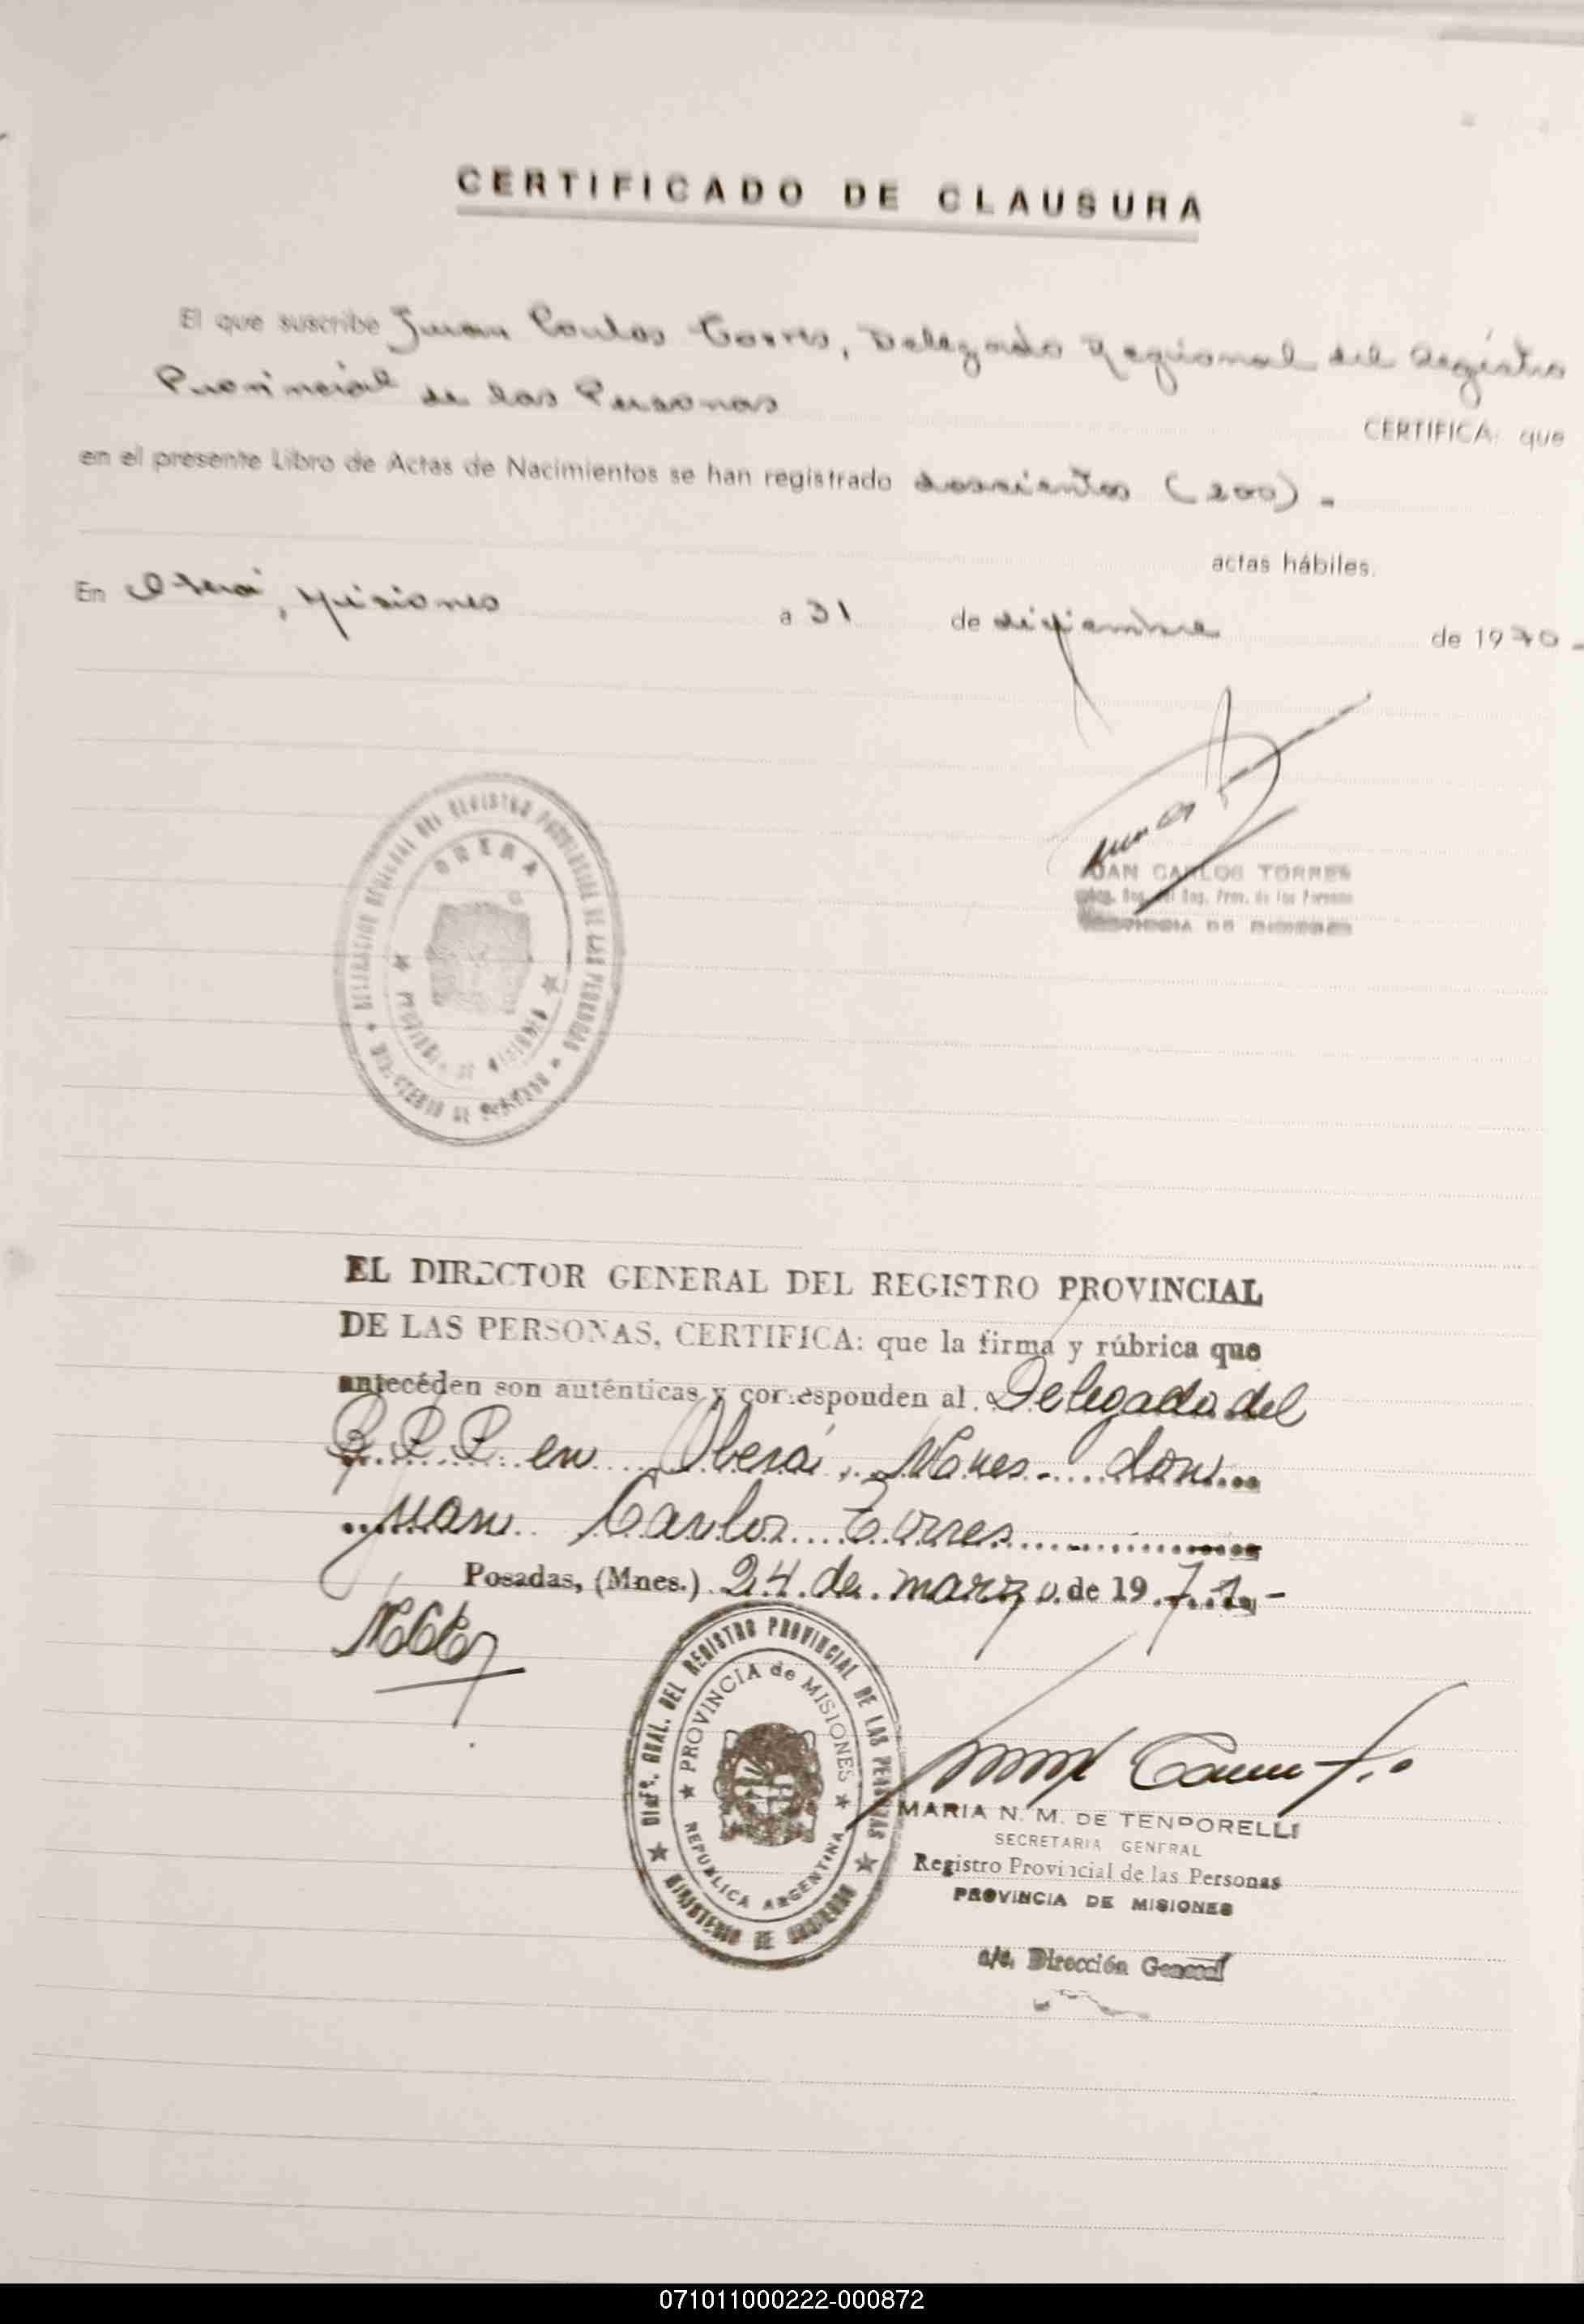 CERTIFICADO DE CLAUSURA
El que suscribe Juan Carlos Torres, Delegado Regional del Registro
Provincial de las Personas
CERTIFICA: que
en el presente Libro de Actas de Nacimientos se han registrado doscientos (200) -
actas hábiles.
En Oberá, Misiones a 31 de diciembre de 1970 -
DELEGACION REGIONAL DEL REGISTRO PROVINCIAL DE LAS PERSONAS
OBERA
PROVINCIA DE MISIONES
MINISTERIO DE GOBIERNO
JUAN CARLOS TORRES
Reg. Prov. de las Personas
PROVINCIA DE MISIONES
EL DIRECTOR GENERAL DEL REGISTRO PROVINCIAL
DE LAS PERSONAS, CERTIFICA: que la firma y rúbrica que
antecéden son auténticas y corresponden al Delegado del
R.P.P. en Oberá, Mnes. don
Juan Carlos Torres
Posadas, (Mnes.) 24 de marzo de 1971-
DIREC. GRAL. DEL REGISTRO PROVINCIAL DE LAS PERSONAS
PROVINCIA de MISIONES
REPUBLICA ARGENTINA
MINISTERIO DE GOBIERNO
MARIA N. M. DE TENPORELLI
SECRETARIA GENERAL
Registro Provincial de las Personas
PROVINCIA DE MISIONES
a/c. Dirección General
071011000222-000872